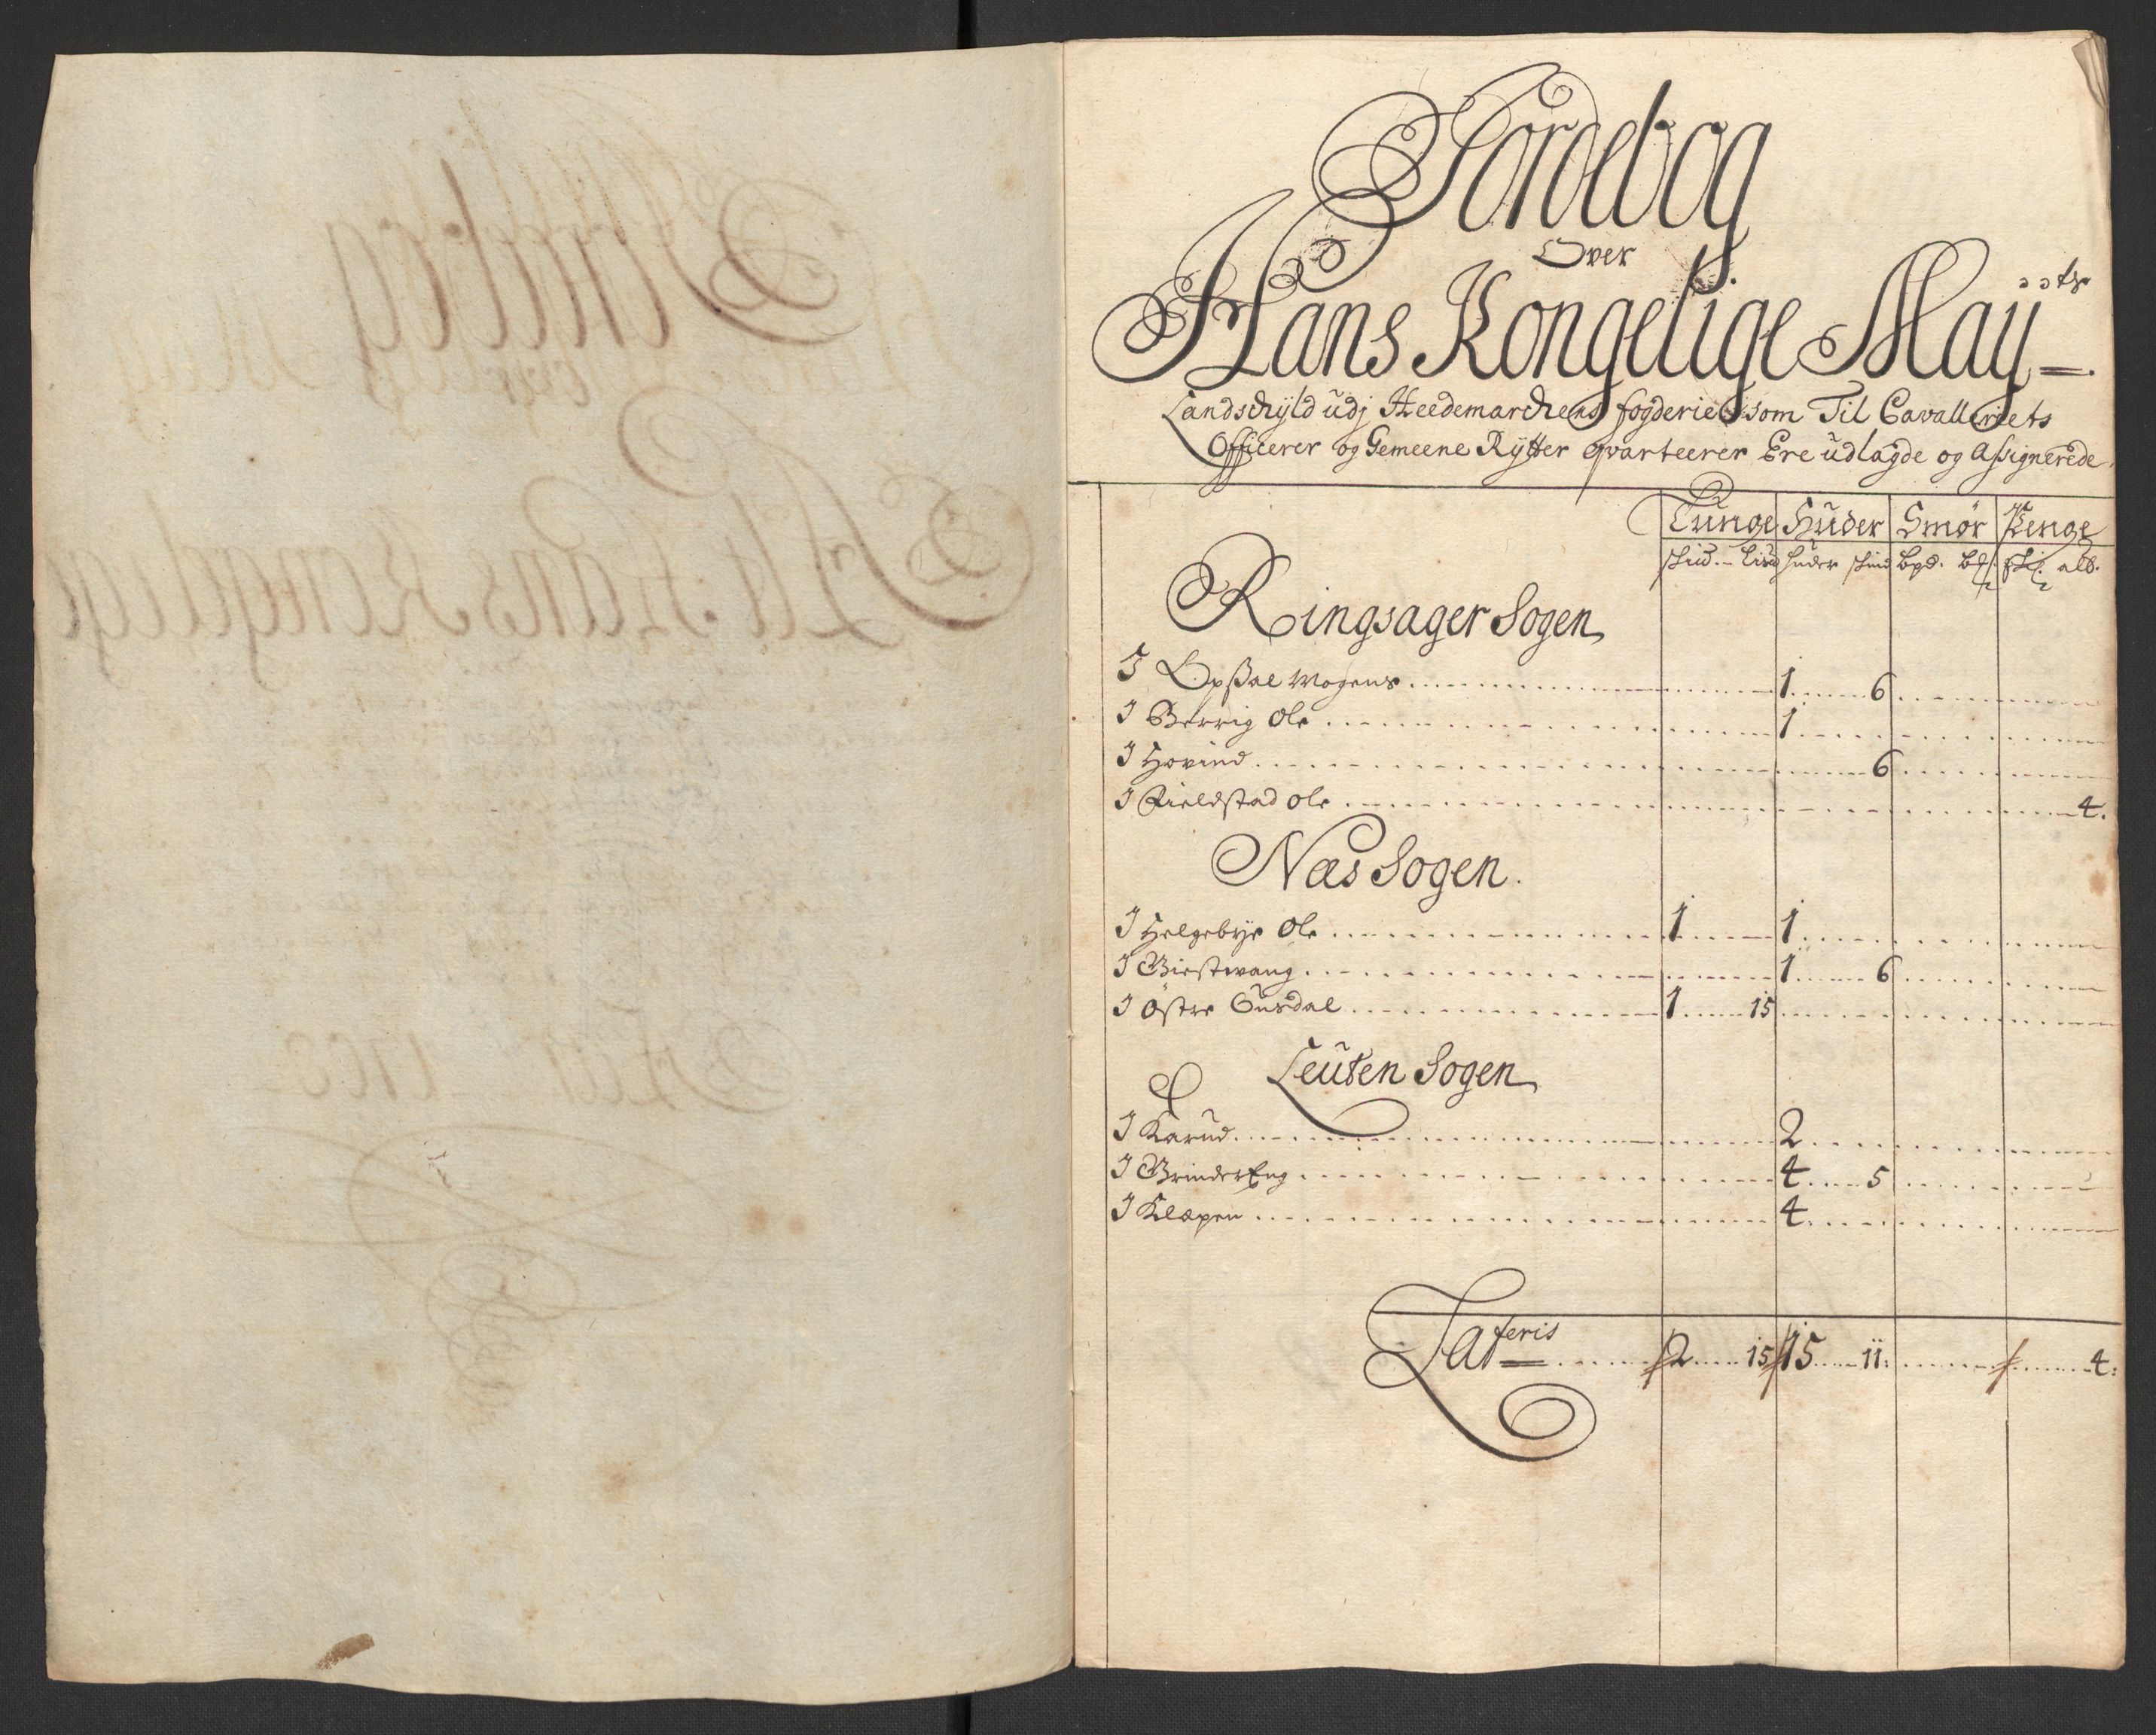 Jordebog
Over
Hans Kongelige May=ts
Landschyld udj Heedemarchens fogderie som Til Cavalleriets
Officerer og Gemeene Rÿtter qvarteerer Ere udlagde og Assignerede
Tunge Huder Smør Penge
skud. Lisd huder skind bpd. alb.
Ringsager Sogen
I Opßal Mogens 1 6
I Berrig Ole 1
I Hovind 6
I Fieldstad Ole 4.
Næs Sogen.
I Helgebye Ole 1 1
I Giestvang 1 6
I Østre 1 15
Leuten Sogen
I Karud 2
I GrinderEng 4 5
I Klæpen 4
Lateris 2 15 15 11: 4: